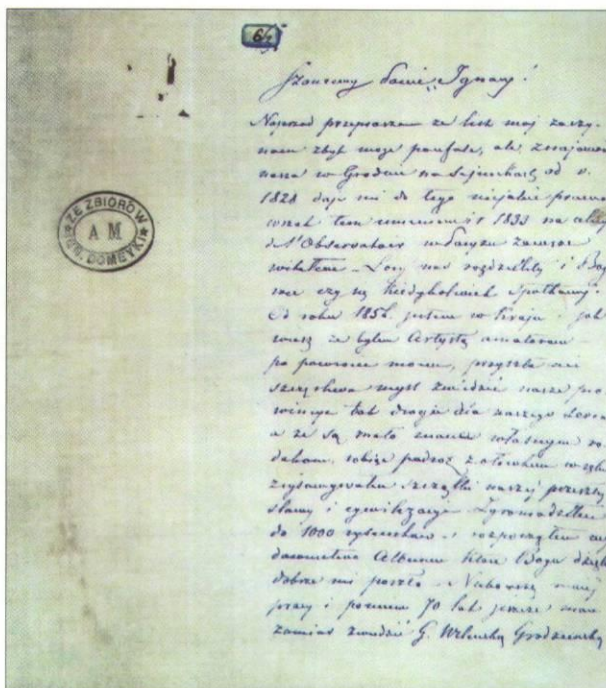 62
Szanowny Panie Ignacy!
Naprzód przepraszam że list mój zaczy-
nam zbyt może poufale, ale znajomość
nasza w Grodnie na Sejmikach od r.
1828 daje mi do tego niejakie prawo
wszak tem 1833 na
d'l'Observatoire w Paryżu zawsze
witałem – Losy nas rozdzieliły i Bóg
wie czy się kiedykolwiek spotkamy.
Od roku 185 jestem w kraju – jak
wiesz że byłem Artystą amatorem –
po powrocie moim, przyszła mi
szczęśliwa myśl zwiedzić nasze pro
wincye tak drogie dla naszego serca
a że są mało znane własnym ro
dakom, robiąc podróż z ołówkiem w ręku
zrysowywałem szczątki naszej przeszłej
sławy i cywilizacyi Zgromadziłem
do 1000 rysunków i rozpocząłem
Album które Bogu dzięki
dobrze mi poszło – Nieborszę mnej
pracy i pomimo 70 lat jeszcze mam
zamiar zwiedzić G. Wileńską Grodzieńską
ZE ZBIORÓW
A M
IGN. DOMEYKI